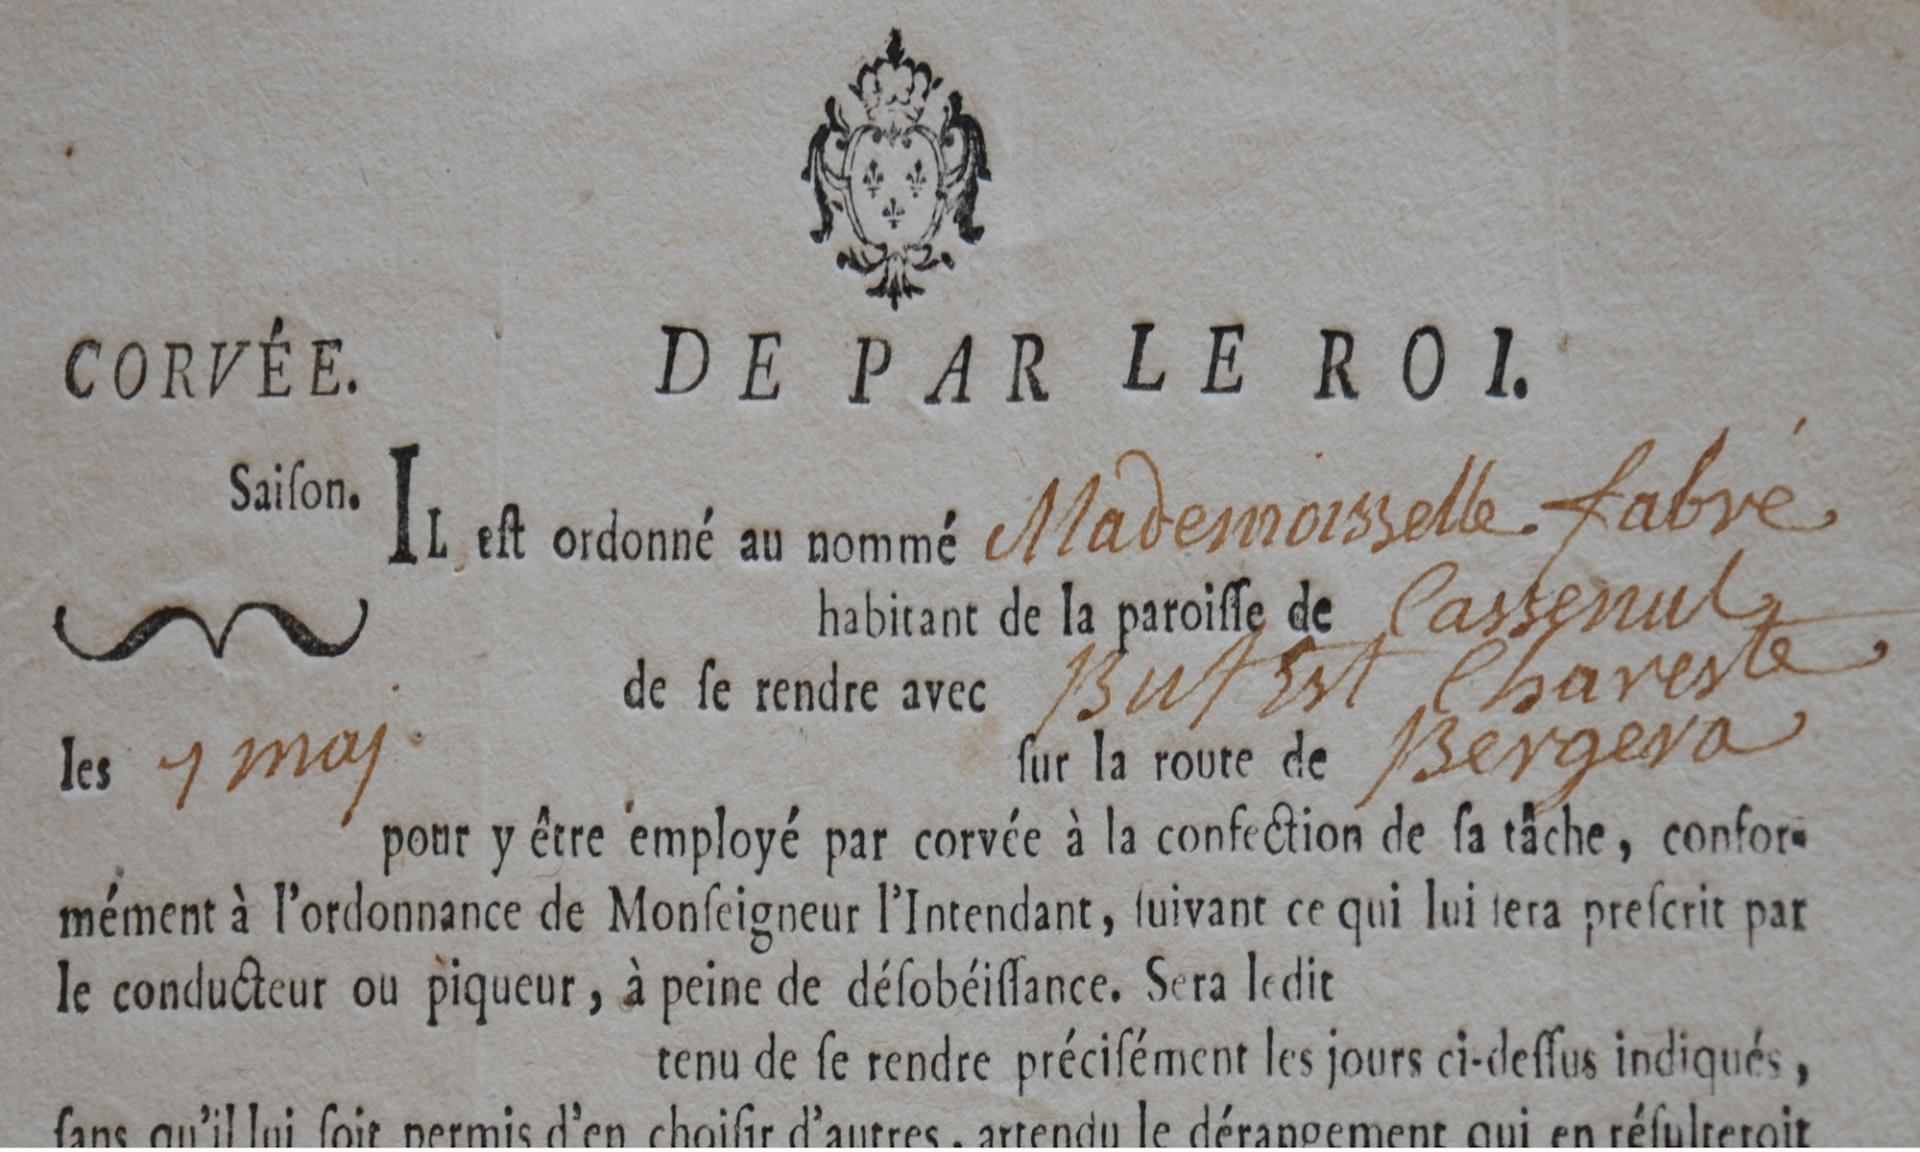 CORVÉE. DE PAR LE ROI.
Saiſon. IL eſt ordonné au nommé Mademoisselle fabré
habitant de la paroiſſe de Cassenul
de ſe rendre avec Buf Est Chareste
les 7 maj ſur la route de Bergera
pour y être employé par corvée à la confection de ſa tâche, confor-
mément à l'ordonnance de Monſeigneur l'Intendant, ſuivant ce qui lui ſera preſcrit par
le conducteur ou piqueur, à peine de déſobéiſſance. Sera ledit
tenu de ſe rendre préciſément les jours ci-deſſus indiqués,
ſans qu'il lui ſoit permis d'en choiſir d'autres, attendu le dérangement qui en réſulteroit